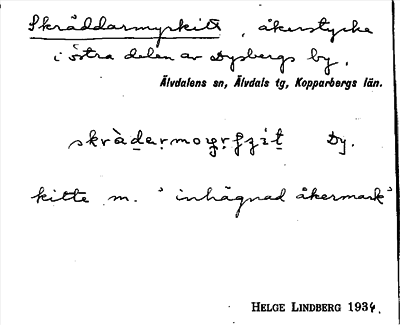 Skräddarmyrkitt, åkerstycke
i östra delen av Dysbergs by.
Älvdalens sn, Älvdals tg, Kopparbergs län.
Dy.
kitte m. ' inhägnad åkermark'
HELGE LINDBERG 1934.